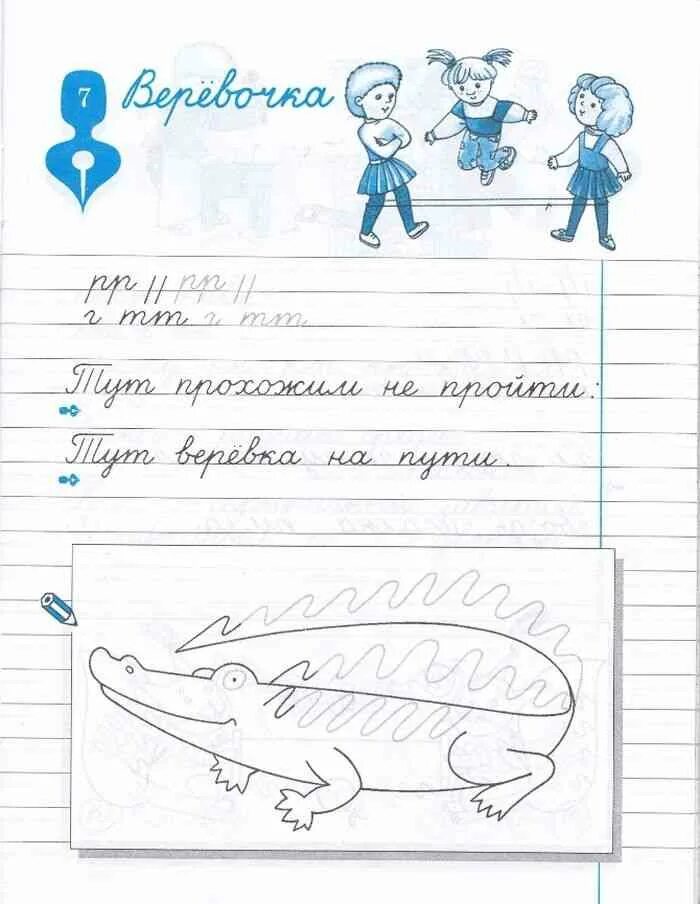 7
Верёвочка
рр || рр ||
г тт г тт
Тут прохожим не пройти:
Тут верёвка на пути.